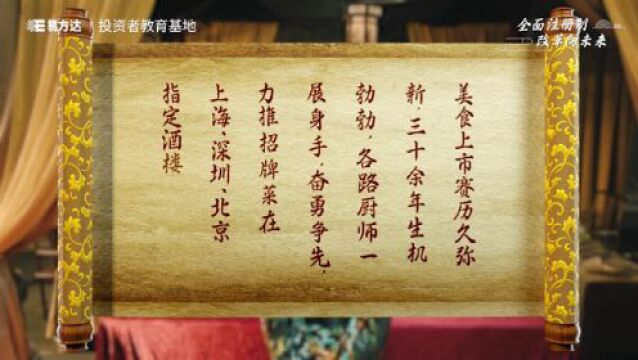 易方达 投资者教育基地
全面注册制
改革向未来
美食上市赛历久弥
新，三十余年生机
勃勃，各路厨师一
展身手，奋勇争先，
力推招牌菜在
上海、深圳、北京
指定酒楼